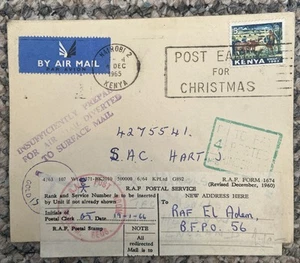 BY AIR MAIL
PAR AVION
NAIROBI 2
4 DEC
1965
KENYA
POST EARLY
FOR
CHRISTMAS
KENYA
INSUFFICIENTLY PREPAID
FOR AIR MAIL DIVERTED
TO SURFACE MAIL
4275541.
S.A.C. HART. J.
R.A.F. FORM-1674
(Revised December, 1960)
R.A.F POSTAL SERVICE
Rank and Service Number is to be inserted
by Unit if not already shown.
NEW ADDRESS HERE
Initials of
Postal Clerk
R.A.F. Postal Stamp
NOTE
All
redirected
Mail is to
RAF El Adem,
B.F.P.O. 56